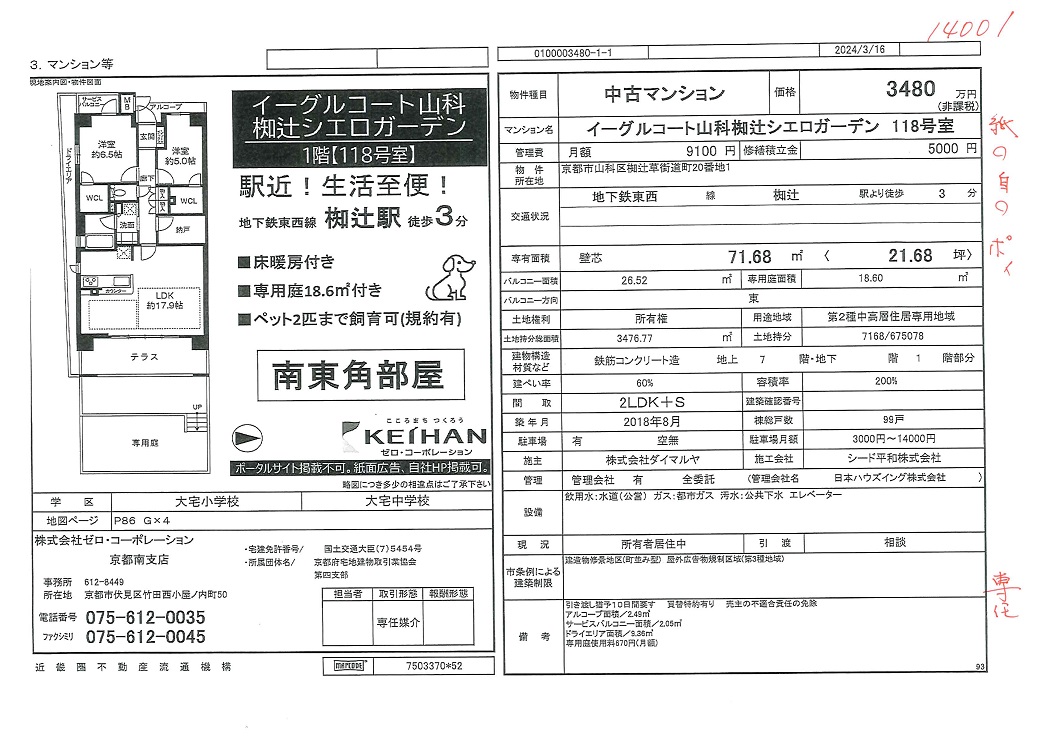 14001
3. マンション等
現地案内図・物件図面
0100003480-1-1
2024/3/16
サービスバルコニー
MB
アルコーブ
玄関
洋室
約6.5帖
洋室
約5.0帖
ドライエリア
廊下
WCL
WCL
洗面
納戸
カウンター
LDK
約17.9帖
テラス
UP
専用庭
イーグルコート山科
椥辻シエロガーデン
1階【118号室】
駅近！生活至便！
地下鉄東西線 椥辻駅 徒歩3分
■床暖房付き
■専用庭18.6㎡付き
■ペット2匹まで飼育可(規約有)
南東角部屋
こころまち つくろう
KEIHAN
ゼロ・コーポレーション
ポータルサイト掲載不可。紙面広告、自社HP掲載可。
略図につき多少の相違点はご了承下さい
学 区 大宅小学校 大宅中学校
地図ページ P86 G×4
株式会社ゼロ・コーポレーション
京都南支店
・宅建免許番号/ 国土交通大臣(7)5454号
・所属団体名/ 京都府宅地建物取引業協会
第四支部
事務所 612-8449
所在地 京都市伏見区竹田西小屋ノ内町50
電話番号 075-612-0035
ファクシミリ 075-612-0045
担当者 取引形態 報酬形態
専任媒介
近畿圏不動産流通機構
MAPCODE 7503370*52
物件種目 中古マンション 価格 3480 万円
(非課税)
マンション名 イーグルコート山科椥辻シエロガーデン 118号室
管理費 月額 9100 円 修繕積立金 5000 円
物件所在地 京都市山科区椥辻草街道町20番地1
交通状況 地下鉄東西 線 椥辻 駅より徒歩 3 分
専有面積 壁芯 71.68 ㎡ 〈 21.68 坪〉
バルコニー面積 26.52 ㎡ 専用庭面積 18.60 ㎡
バルコニー方向 東
土地権利 所有権 用途地域 第2種中高層住居専用地域
土地持分総面積 3476.77 ㎡ 土地持分 7168/675078
建物構造材質など 鉄筋コンクリート造 地上 7 階・地下 階 1 階部分
建ぺい率 60% 容積率 200%
間 取 2LDK＋S 建築確認番号
築年月 2018年8月 棟総戸数 99戸
駐車場 有 空無 駐車場月額 3000円～14000円
施主 株式会社ダイマルヤ 施工会社 シード平和株式会社
管理 管理会社 有 全委託 (管理会社名 日本ハウズイング株式会社 )
設備 飲用水:水道(公営) ガス:都市ガス 汚水:公共下水 エレベーター
現 況 所有者居住中 引 渡 相談
市条例による建築制限 建造物修景地区(町並み型) 屋外広告物規制区域(第3種地域)
備 考 引き渡し猶予10日間要す 買替特約有り 売主の不適合責任の免除
アルコーブ面積／2.49㎡
サービスバルコニー面積／2.05㎡
ドライエリア面積／9.36㎡
専用庭使用料670円(月額)
93
紙の自のポイ